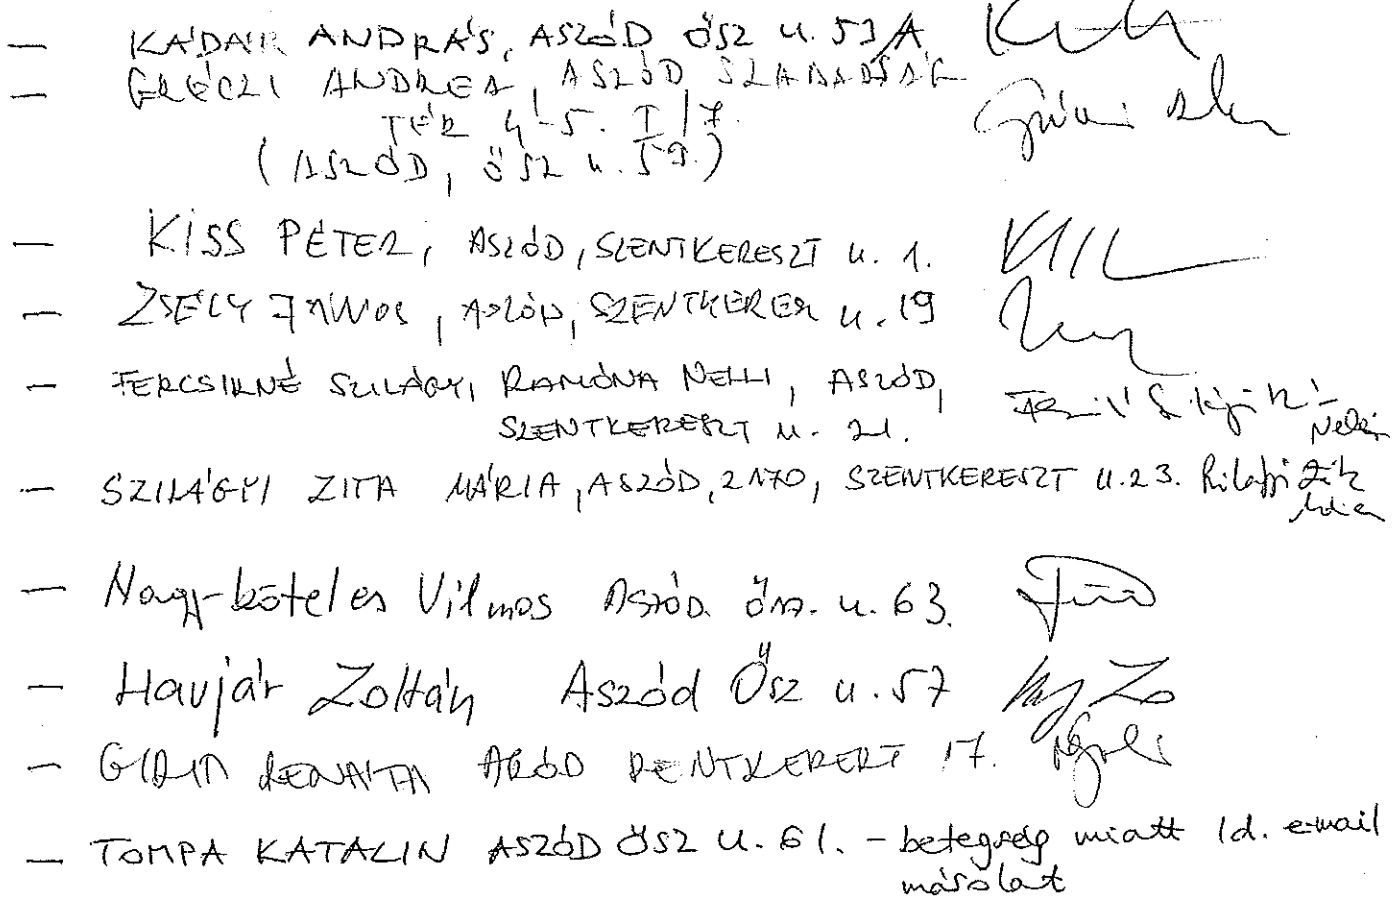 — KÁDÁR ANDRÁS, ASZÓD ŐSZ u. 59/A
— GRÉCZI ANDREA, ASZÓD SZABADSÁG
TÉR 4-5. I/7.
(ASZÓD, ŐSZ u. 59.)
— KISS PÉTER, ASZÓD, SZENTKERESZT u. 1.
— ZSÉLY JÁNOS, ASZÓD, SZENTKERESZ u. 19
— FERCSIKNÉ SZILÁGYI RAMÓNA NELLI, ASZÓD,
SZENTKERESZT u. 21.
— SZILÁGYI ZITA MÁRIA, ASZÓD, 2170, SZENTKERESZT U. 23. Szilágyi Zita
Mária
— Nagy-Köteles Vilmos Aszód. ősz. u. 63.
— Havjár Zoltán Aszód Ősz u. 57
— RENÁTA ASZÓD SZENTKERESZT 17.
— TOMPA KATALIN ASZÓD ŐSZ U. 61. – betegség miatt ld. email
másolat